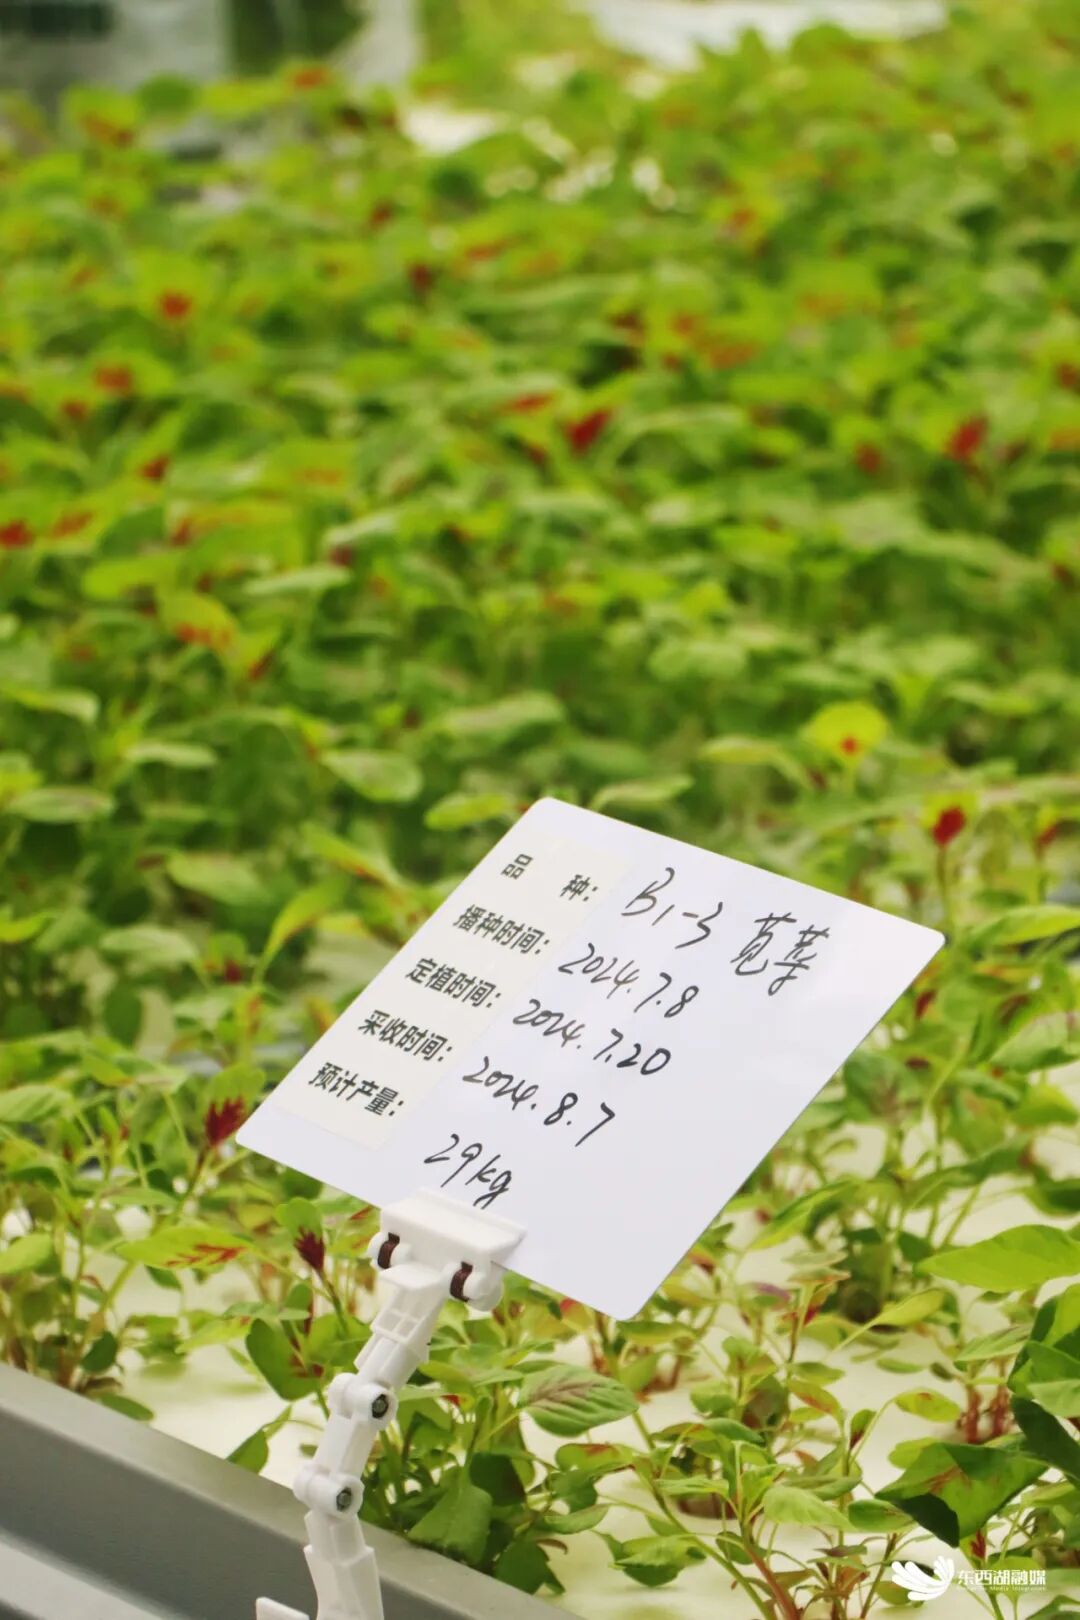 品 种: B1-3 苋菜
播种时间: 2024.7.8
定植时间: 2024.7.20
采收时间: 2024.8.7
预计产量: 29kg
东西湖融媒